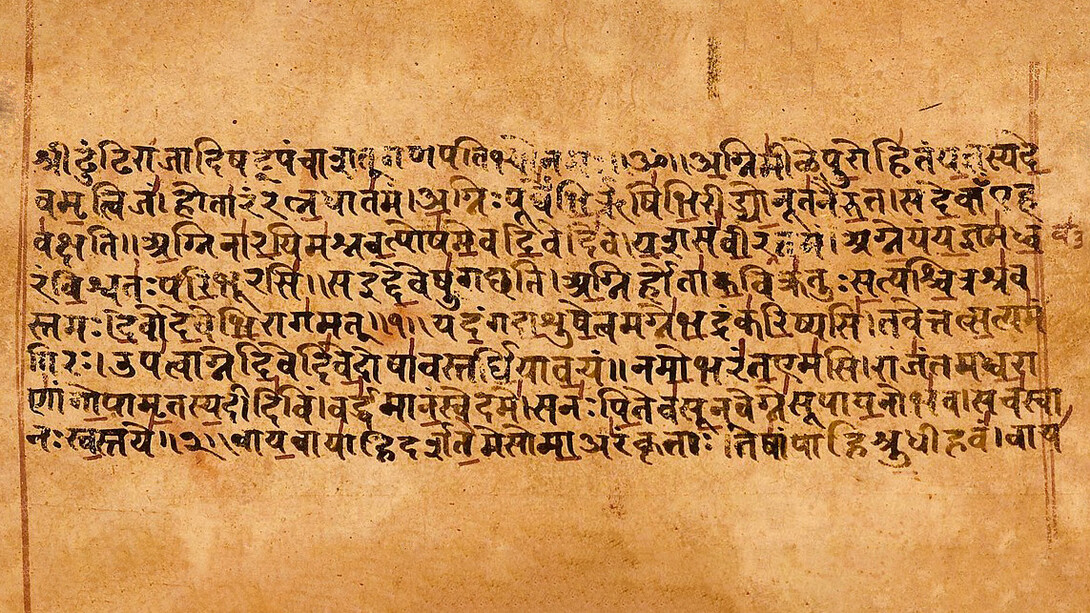 श्रीढुंढिराजादिषट्पंचाशतूगणपतिभ्योनमः॥ॐ॥अग्निमीळेपुरोहितंयज्ञस्यदे
वमृत्विजं।होतारंरत्नधातमं।अग्निःपूर्वेभिर्ऋषिभिरीड्योनूतनैरुत।सदेवाँएह
वक्षति॥अग्निनारयिमश्नवत्पोषमेवदिवेदिवे।यशसंवीरवत्तमं।अग्नेयंयज्ञमध्व
रंविश्वतःपरिभूरसि।सइद्देवेषुगछति।अग्निर्होताकविक्रतुःसत्यश्चित्रश्रव
स्तमः।देवोदेवेभिरागमत्॥१॥यदंगदाशुषेत्वमग्नेभद्रंकरिष्यसि।तवेत्तत्सत्यमं
गिरः।उपत्वाग्नेदिवेदिवेदोषावस्तर्धियावयं॥नमोभरंतएमसि।राजंतमध्वरा
णांगोपामृतस्यदीदिविं।वर्द्धमानंस्वेदमे।सनःपितेवसूनवेग्नेसूपायनोभव।सचस्वा
नःस्वस्तये॥२॥वायवायाहिदर्शतेमेसोमाअरंकृताः।तेषांपाहिश्रुधीहवं।वाय